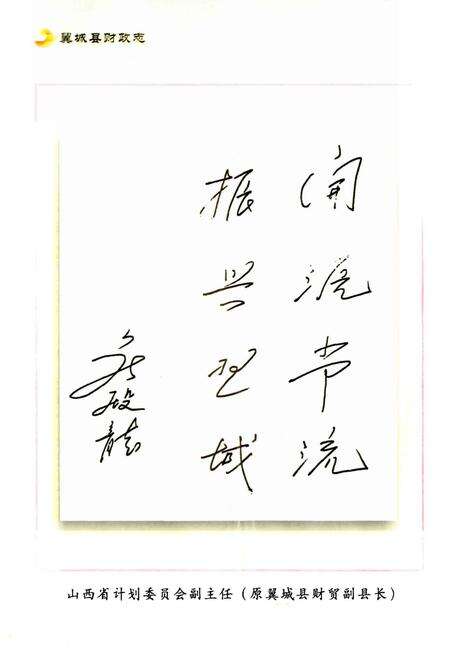 翼城县财政志
開源节流
振兴翌城
山西省计划委员会副主任（原翼城县财贸副县长）